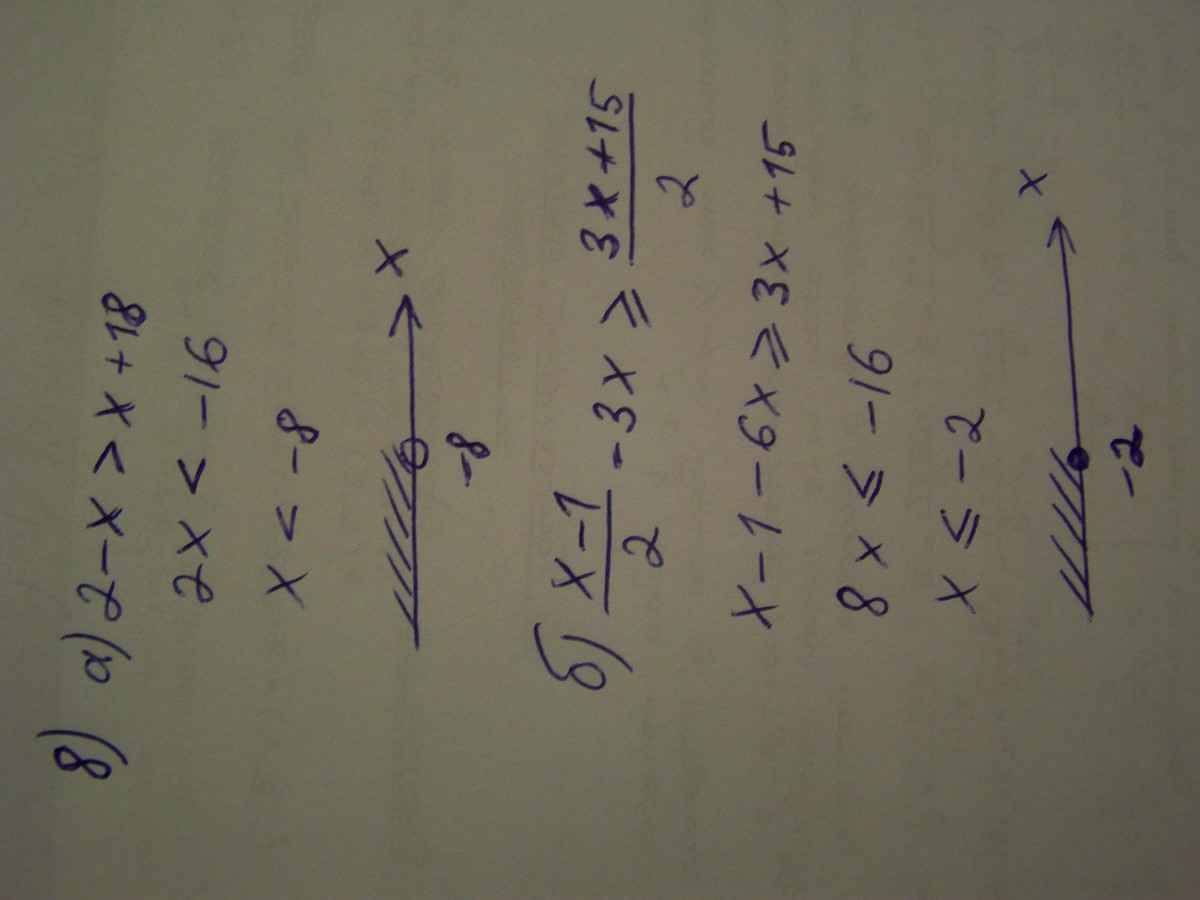 8) а) 2-x > x+18
2x < -16
x < -8
x
-8
б) \frac{x-1}{2} - 3x ⩾ \frac{3x+15}{2}
x-1-6x ⩾ 3x+15
8x ⩽ -16
x ⩽ -2
x
-2